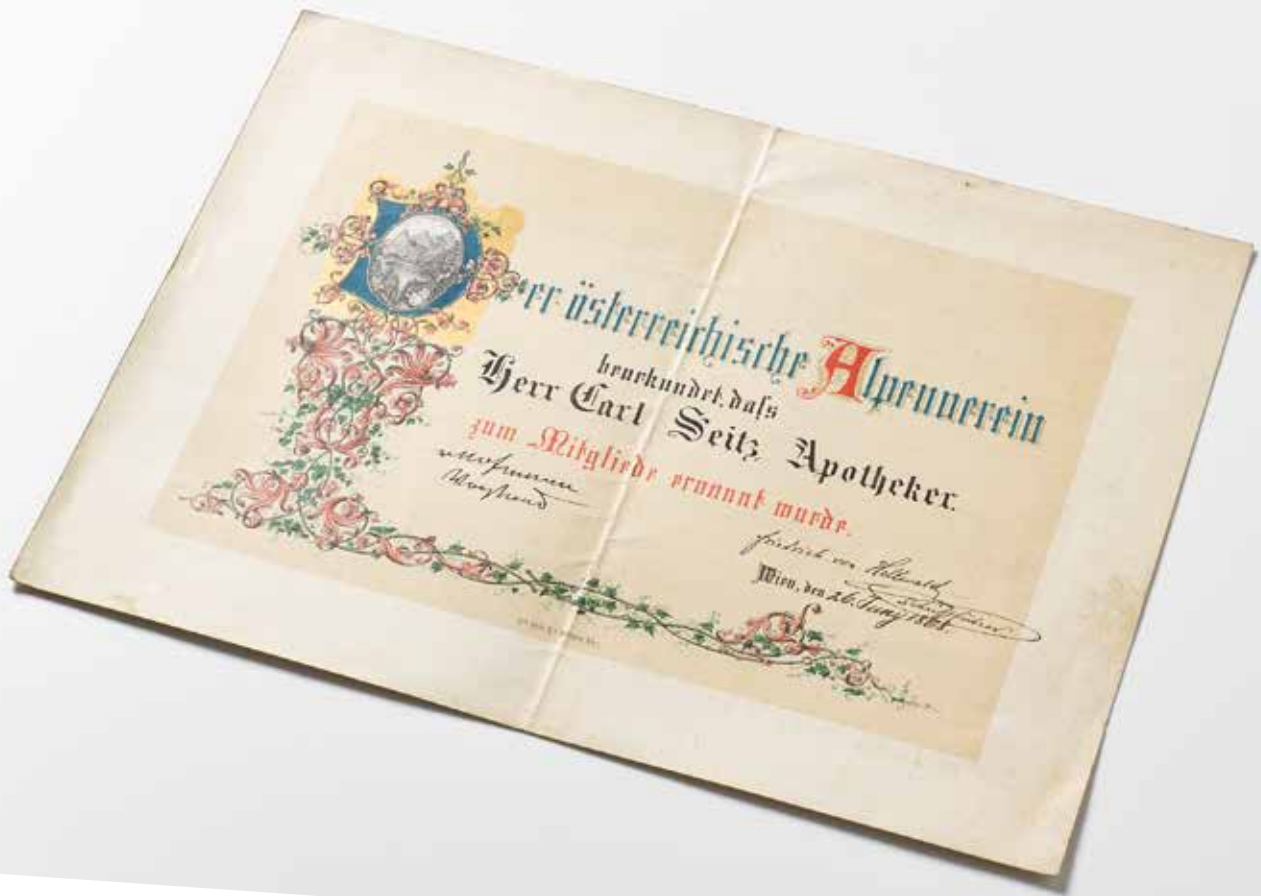 Der österreichische Alpenverein
beurkundet, daſs
Herr Carl Seitz Apotheker.
zum Mitgliede ernannt wurde.
Friedrich von Hellwald
Schriftführer
Wien, den 26. Juny 1866.